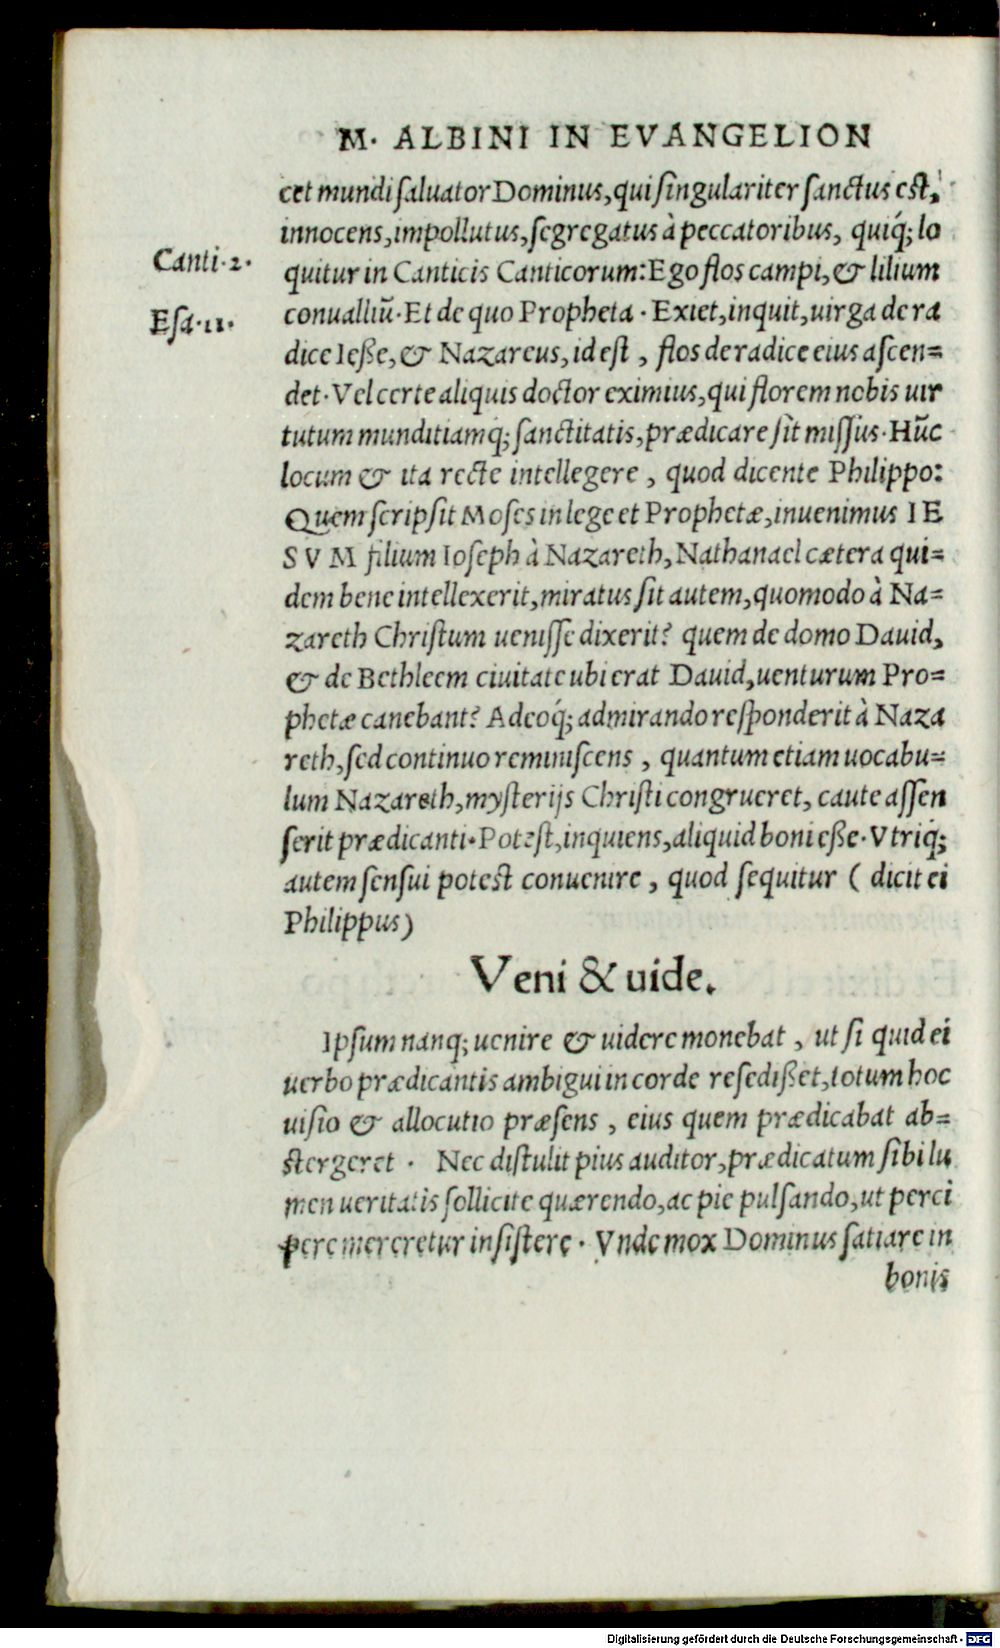 M. ALBINI IN EVANGELION
cet mundi saluator Dominus, qui singulariter sanctus est,
innocens, impollutus, segregatus à peccatoribus, quiq́; lo
Canti.2.
quitur in Canticis Canticorum: Ego flos campi, & lilium
Esa.11.
conualliũ. Et de quo Propheta. Exiet, inquit, uirga de ra
dice Ieße, & Nazareus, id est, flos de radice eius ascen=
det. Vel certe aliquis doctor eximius, qui florem nobis uir
tutum munditiamq́; sanctitatis, prædicare sit missus. Hũc
locum & ita recte intellegere, quod dicente Philippo:
Quem scripsit Moses in lege et Prophetæ, inuenimus IE
SVM filium Ioseph à Nazareth, Nathanael cætera qui=
dem bene intellexerit, miratus sit autem, quomodo à Na=
zareth Christum uenisse dixerit? quem de domo Dauid,
& de Bethleem ciuitate ubi erat Dauid, uenturum Pro=
phetæ canebant? Adeoq́; admirando responderit à Naza
reth, sed continuo reminiscens, quantum etiam uocabu=
lum Nazareth, mysterijs Christi congrueret, caute assen
serit prædicanti. Potest, inquiens, aliquid boni eße. Vtriq́;
autem sensui potest conuenire, quod sequitur ( dicit ei
Philippus)
Veni & uide.
Ipsum nanq; uenire & uidere monebat, ut si quid ei
uerbo prædicantis ambigui in corde resedißet, totum hoc
uisio & allocutio præsens, eius quem prædicabat ab=
stergeret. Nec distulit pius auditor, prædicatum sibi lu
men ueritatis sollicite quærendo, ac pie pulsando, ut perci
pere mereretur insistere. Vnde mox Dominus satiare in
bonis
Digitalisierung gefördert durch die Deutsche Forschungsgemeinschaft - DFG